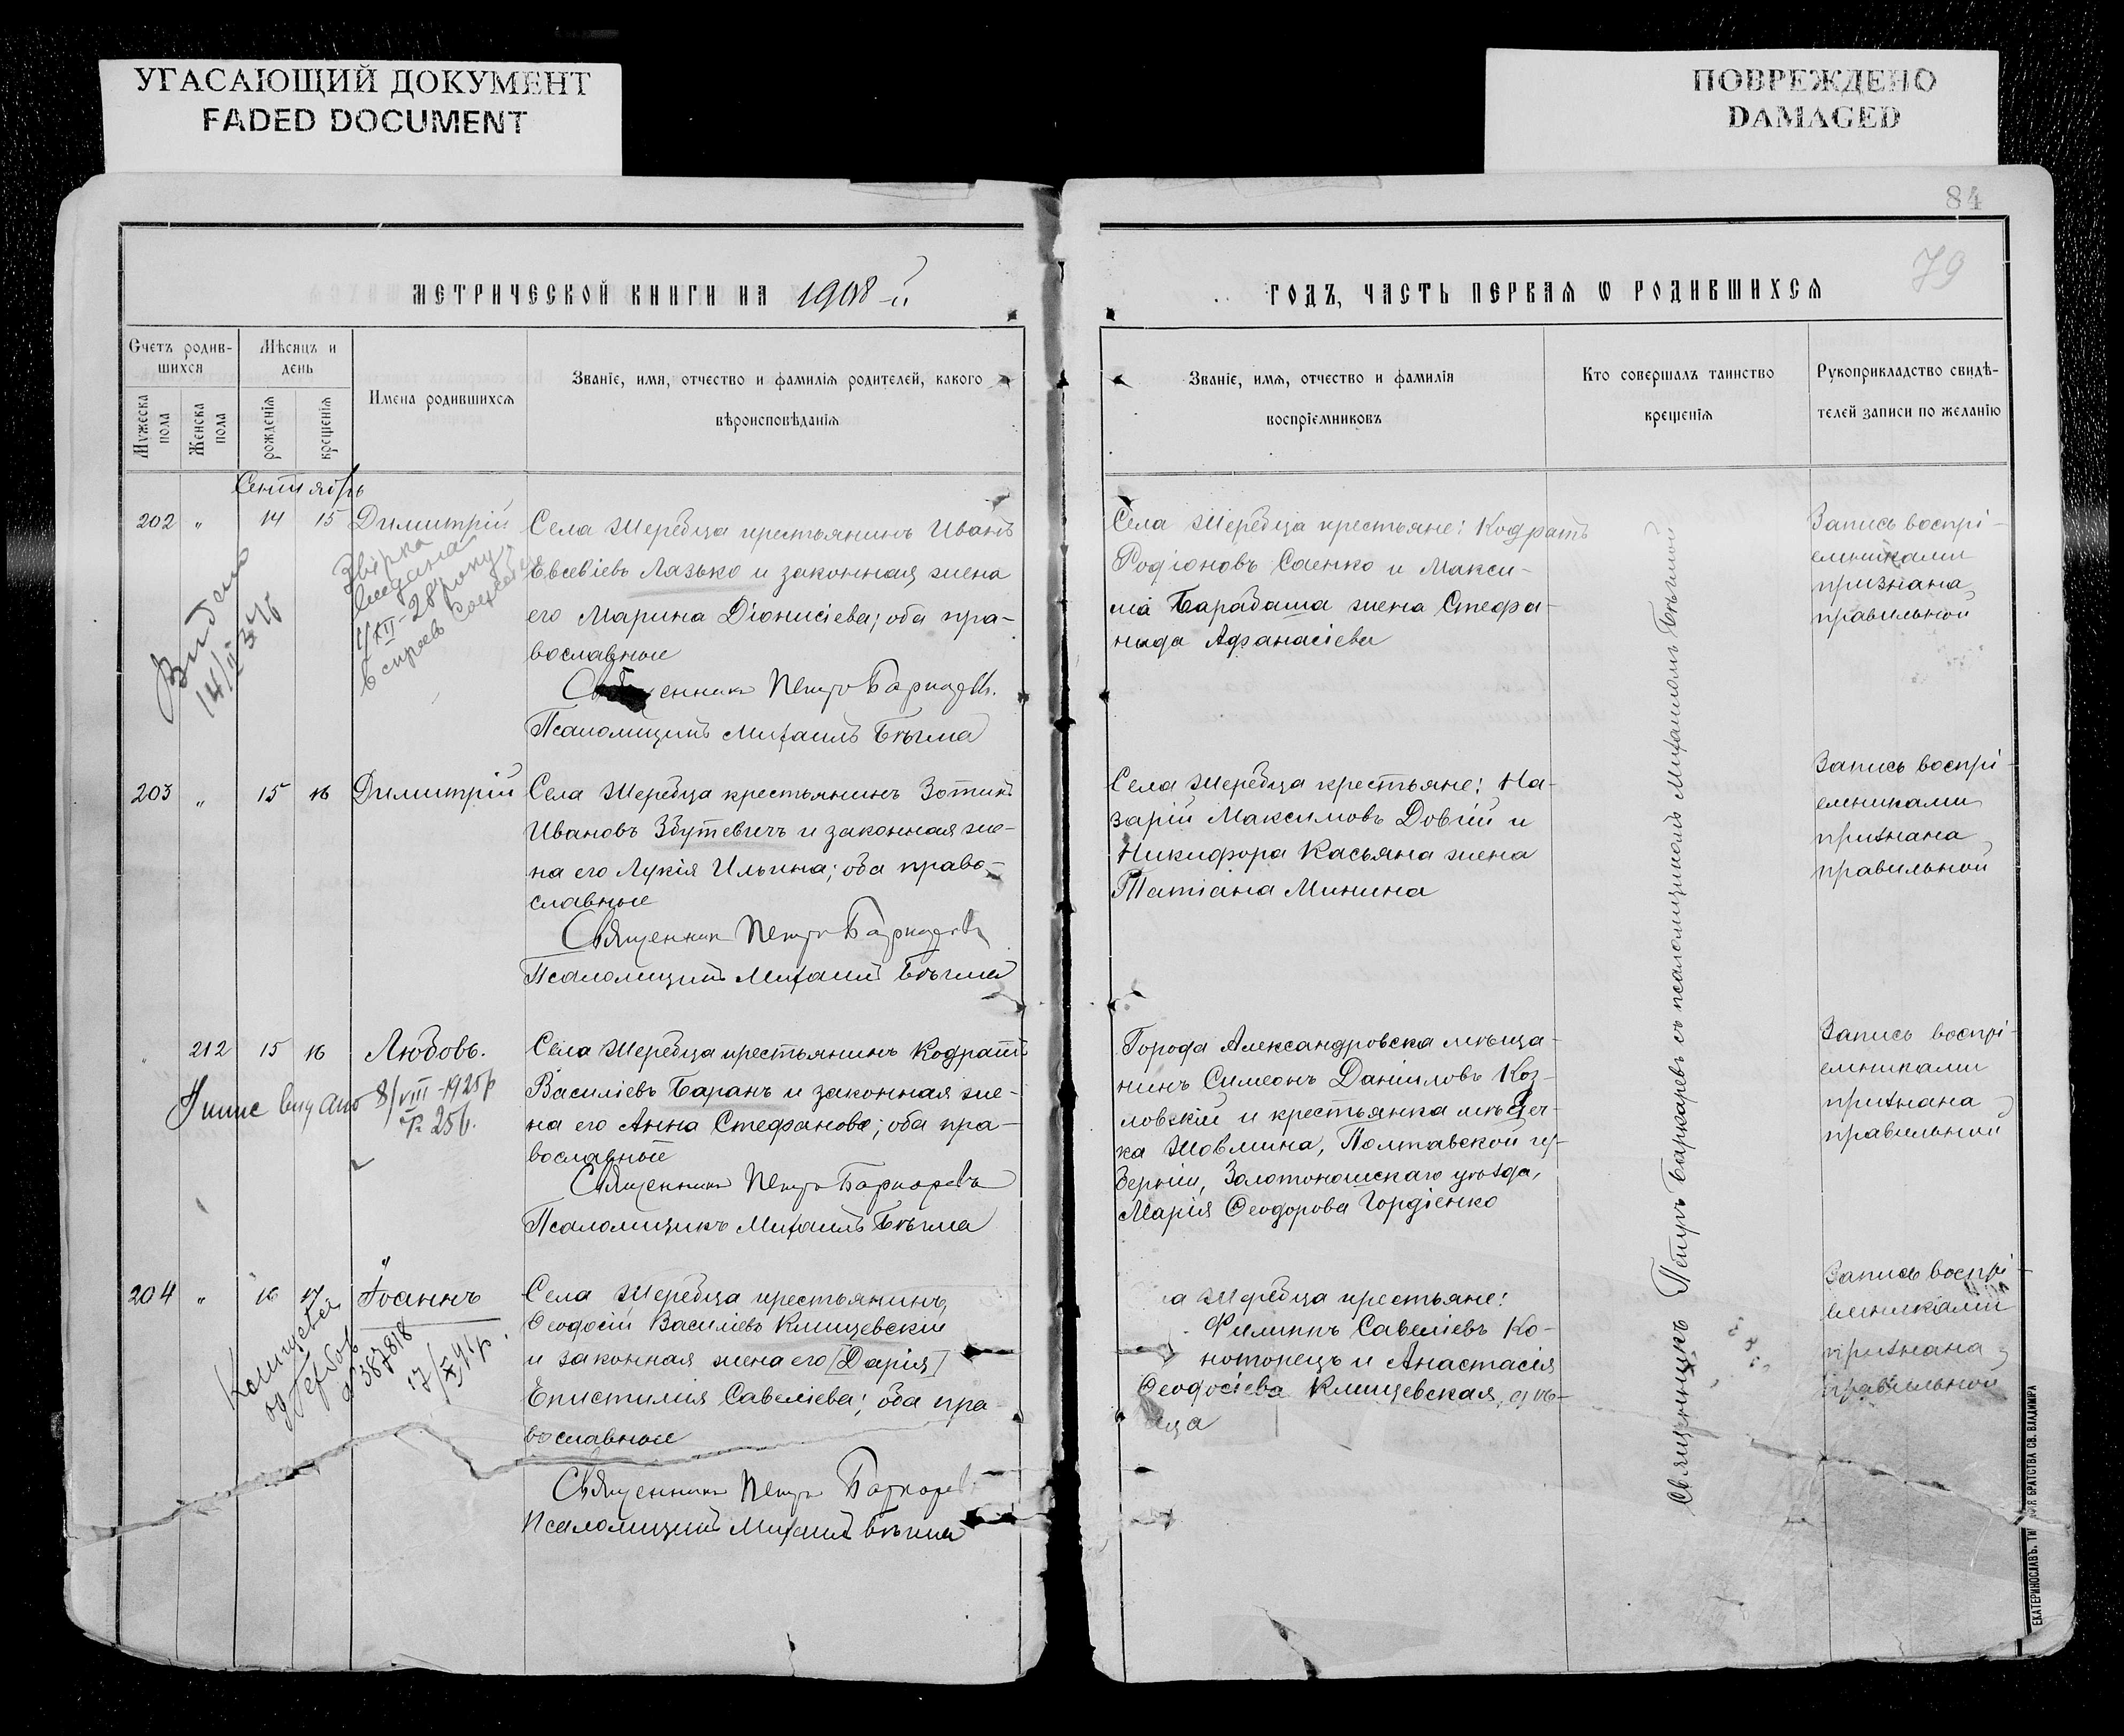 УГАСАЮЩИЙ ДОКУМЕНТ
FADED DOCUMENT
ПОВРЕЖДЕНО
DAMAGED
84
79
МЕТРИЧЕСКОЙ КНИГИ НА 1908-й
ГОДЪ, ЧАСТЬ ПЕРВАЯ Ѡ РОДИВШИХСЯ
Счетъ родив-
шихся
Мѣсяцъ и
день
Мужеска
пола
Женска
пола
рожденія
крещенія
Имена родившихся
Званіе, имя, отчество и фамилія родителей, какого
вѣроисповѣданія
Званіе, имя, отчество и фамилія
воспріемниковъ
Кто совершалъ таинство
крещенія
Рукоприкладство свидѣ-
телей записи по желанію
Сентябрь
202 " 14 15 Димитрій
Села Жеребца крестьянинъ Иванъ
Евсевіевъ Лазько и законная жена
его Марина Діонисіева; оба пра-
вославные
Священникъ Петръ Баркаревъ.
Псаломщикъ Михаилъ Бѣгма
Звірка
видана
1/XII-28 року
в справ
Видано
14/II 34
Села Жеребца крестьяне: Кодратъ
Родіоновъ Саенко и Макси-
ма Барабаша жена Стефа-
нида Афанасіева
Запись воспрі-
емниками
признана
правильной
203 " 15 16 Димитрій
Села Жеребца крестьянинъ Зотикъ
Ивановъ Збутевичъ и законная же-
на его Лукія Ильина; оба право-
славные
Священникъ Петръ Баркаревъ
Псаломщикъ Михаилъ Бѣгма
Села Жеребца крестьяне: На-
зарій Максимовъ Довгій и
Никифора Касьяна жена
Татіана Минина
Запись воспрі-
емниками
признана
правильной
" 212 15 16 Любовь.
Села Жеребца крестьянинъ Кодратъ
Василіевъ Баранъ и законная же-
на его Анна Стефанова; оба пра-
вославные
Священникъ Петръ Баркаревъ
Псаломщикъ Михаилъ Бѣгма
видано 8/VIII-1925р
256.
Города Александровска мѣща-
нинъ Симеонъ Даніиловъ Коз-
ловскій и крестьянка мѣстеч-
ка Жовмина, Полтавской гу-
берніи, Золотоношскаго уѣзда,
Марія Ѳеодорова Гордіенко
Запись воспрі-
емниками
признана
правильной
204 " 16 17 Іоаннъ
Села Жеребца крестьянинъ
Ѳеодосій Василіевъ Клищевскій
и законная жена его [Дарія]
Епистимія Савеліева; оба пра
вославные
Священникъ Петръ Баркаревъ
Псаломщикъ Михаилъ Бѣгма
387818
17/XI 41р.
а Жеребца крестьяне:
Филиппъ Савеліевъ Ко-
нотопецъ и Анастасія
Ѳеодосіева Клищевская, дѣ-
ица
Запись воспрі-
емниками
признана
правильной
Священникъ Петръ Баркаревъ съ псаломщикомъ Михаиломъ Бѣгмой
ЕКАТЕРИНОСЛАВЪ. ТИ ІЯ БРАТСТВА СВ. ВЛАДИМІРА